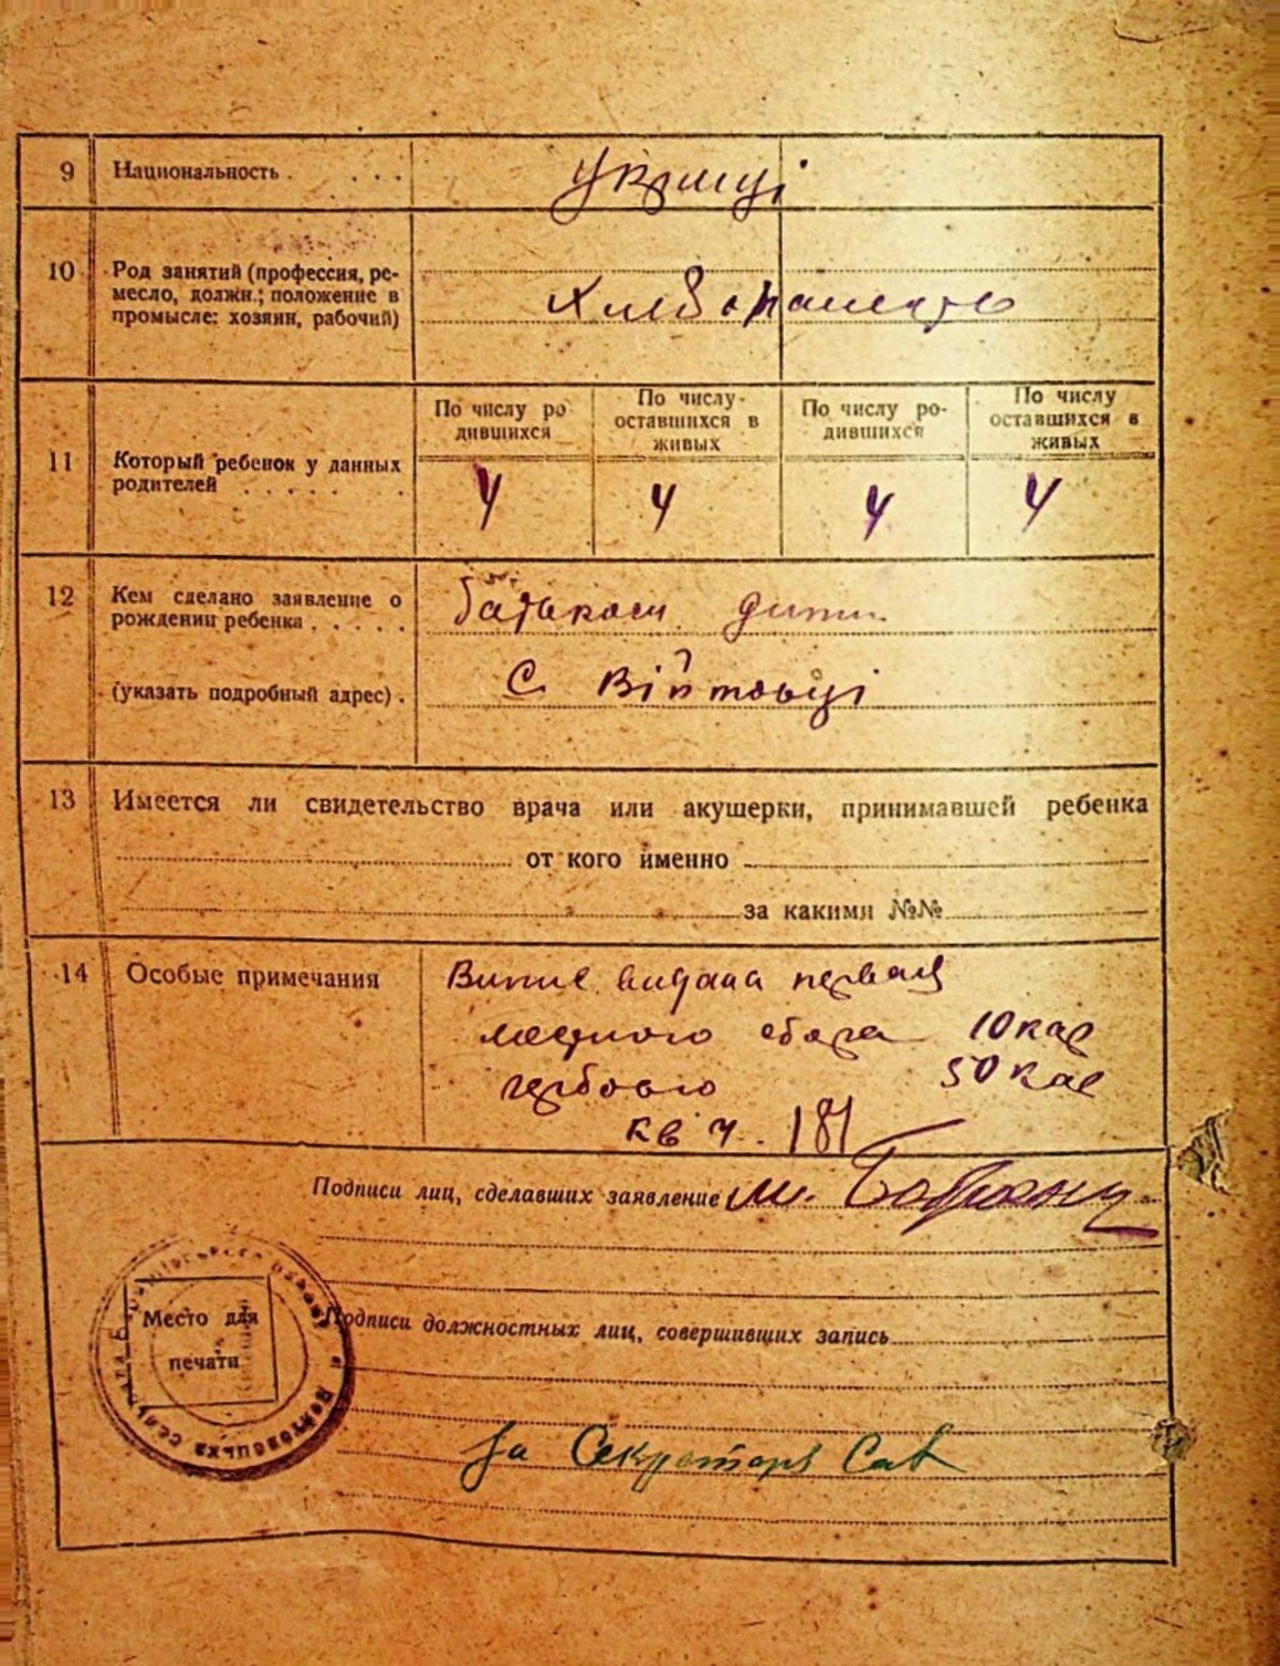 9 Национальность . . . . Українці
10 Род занятий (профессия, ре-
месло, должн.; положение в
промысле: хозяин, рабочий)
По числу ро
дившихся
По числу
оставшихся в
живых
По числу ро-
дившихся
По числу
оставшихся в
живых
11 Который ребенок у данных
родителей . . . . . .
4 4 4 4
12 Кем сделано заявление о
рождении ребенка . . . . .
батьком дити
(указать подробный адрес) . С Війтовці
13 Имеется ли свидетельство врача или акушерки, принимавшей ребенка
от кого именно
за какими №№
14 Особые примечания
видана
местного сбора 10 кап
гербового 50 кап
кв 181
Подписи лиц, сделавших заявление М.
Место для
печати
Подписи должностных лиц, совершивших запись
За Секретаря